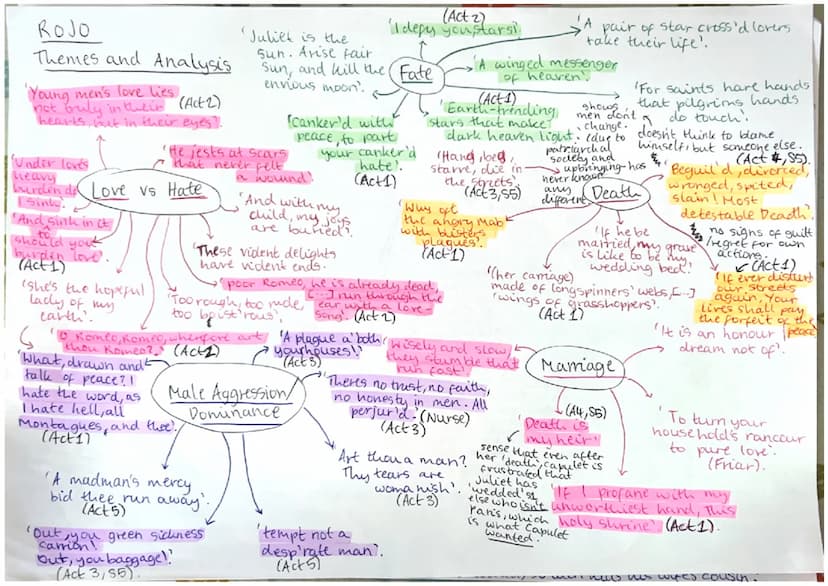 ROJO
Themes and Analysis
'Juliet is the
sun. Arise fair
sun, and kill the
envious moon'.
(Act 2)
'I defy you stars!'
Fate
'A pair of star cross'd lovers
take their life'.
'A winged messenger
of heaven'.
(Act 1)
'For saints have hands
that pilgrims hands
do touch'.
'Canker'd with
peace, to part
your canker'd
hate'.
(Act 1)
'Earth-trending
stars that make
dark heaven light.
'Young men's love lies
not truly in their
hearts, but in their eyes'.
(Act 2)
'He jests at scars
that never felt
a wound'.
'Under loves
heavy
burden do
I sink'.
Love vs Hate
'And sink in it
to
should you
burden love'.
(Act 1)
'And with my
child, my joys
are buried'.
'These violent delights
have violent ends.
'She's the hopeful
lady of my
earth'.
'Too rough, too rude,
too boist'rous'.
'poor Romeo, he is already dead,
[...] run through the
ear with a love-
song'.
(Act 2)
'O Romeo, Romeo, wherefore art
thou Romeo?'
(Act 2)
'Hang, beg,
starve, die in
the streets'.
(Act 3, S5)
shows
men don't
change.
(due to
patriarchal
society and
upbringing - has
never known
any
different
doesn't think to blame
himself but someone else.
(Act 4, S5)
Death
'Beguil'd, divorced,
wronged, spited,
slain! Most
detestable Death'.
no signs of guilt
/regret for own
actions.
(Act 1)
'If ever disturb
our streets
again, Your
lives shall pay
the forfeit of the
peace
'Why oft
the angry Mab
with blisters
plagues'.
(Act 1)
'If he be
married, my grave
is like to be my
wedding bed'.
'(her carriage)
made of long spinners' webs, [...]
'wings of grasshoppers'.
(Act 1)
'What, drawn and
talk of peace? I
hate the word, as
I hate hell, all
Montagues, and thee'.
(Act 1)
'A plague a' both
your houses!'
(Act 3)
Male Aggression/
Dominance
'Theres no trust, no faith,
no honesty in men. All
perjur'd'. (Nurse)
(Act 3)
'Art thou a man?
Thy tears are
womanish'.
(Act 3)
'A madman's mercy
bid thee run away'.
(Act 5)
'Out, you green sickness
carrion!
Out, you baggage!'
(Act 3, S5)
'tempt not a
desp'rate man'.
(Act 5)
'Wisely and slow
they stumble that
run fast'.
Marriage
'It is an honour I
dream not of'.
(A4, S5)
'Death is
my heir'
sense that even after
her 'death', capulet is
frustrated that
Juliet has
'wedded' s1
else who isn't
Paris, which
is what Capulet
wanted.
'To turn your
household's rancour
to pure love'.
(Friar).
'If I profane with my
unworthiest hand, this
holy shrine'. (Act 1).